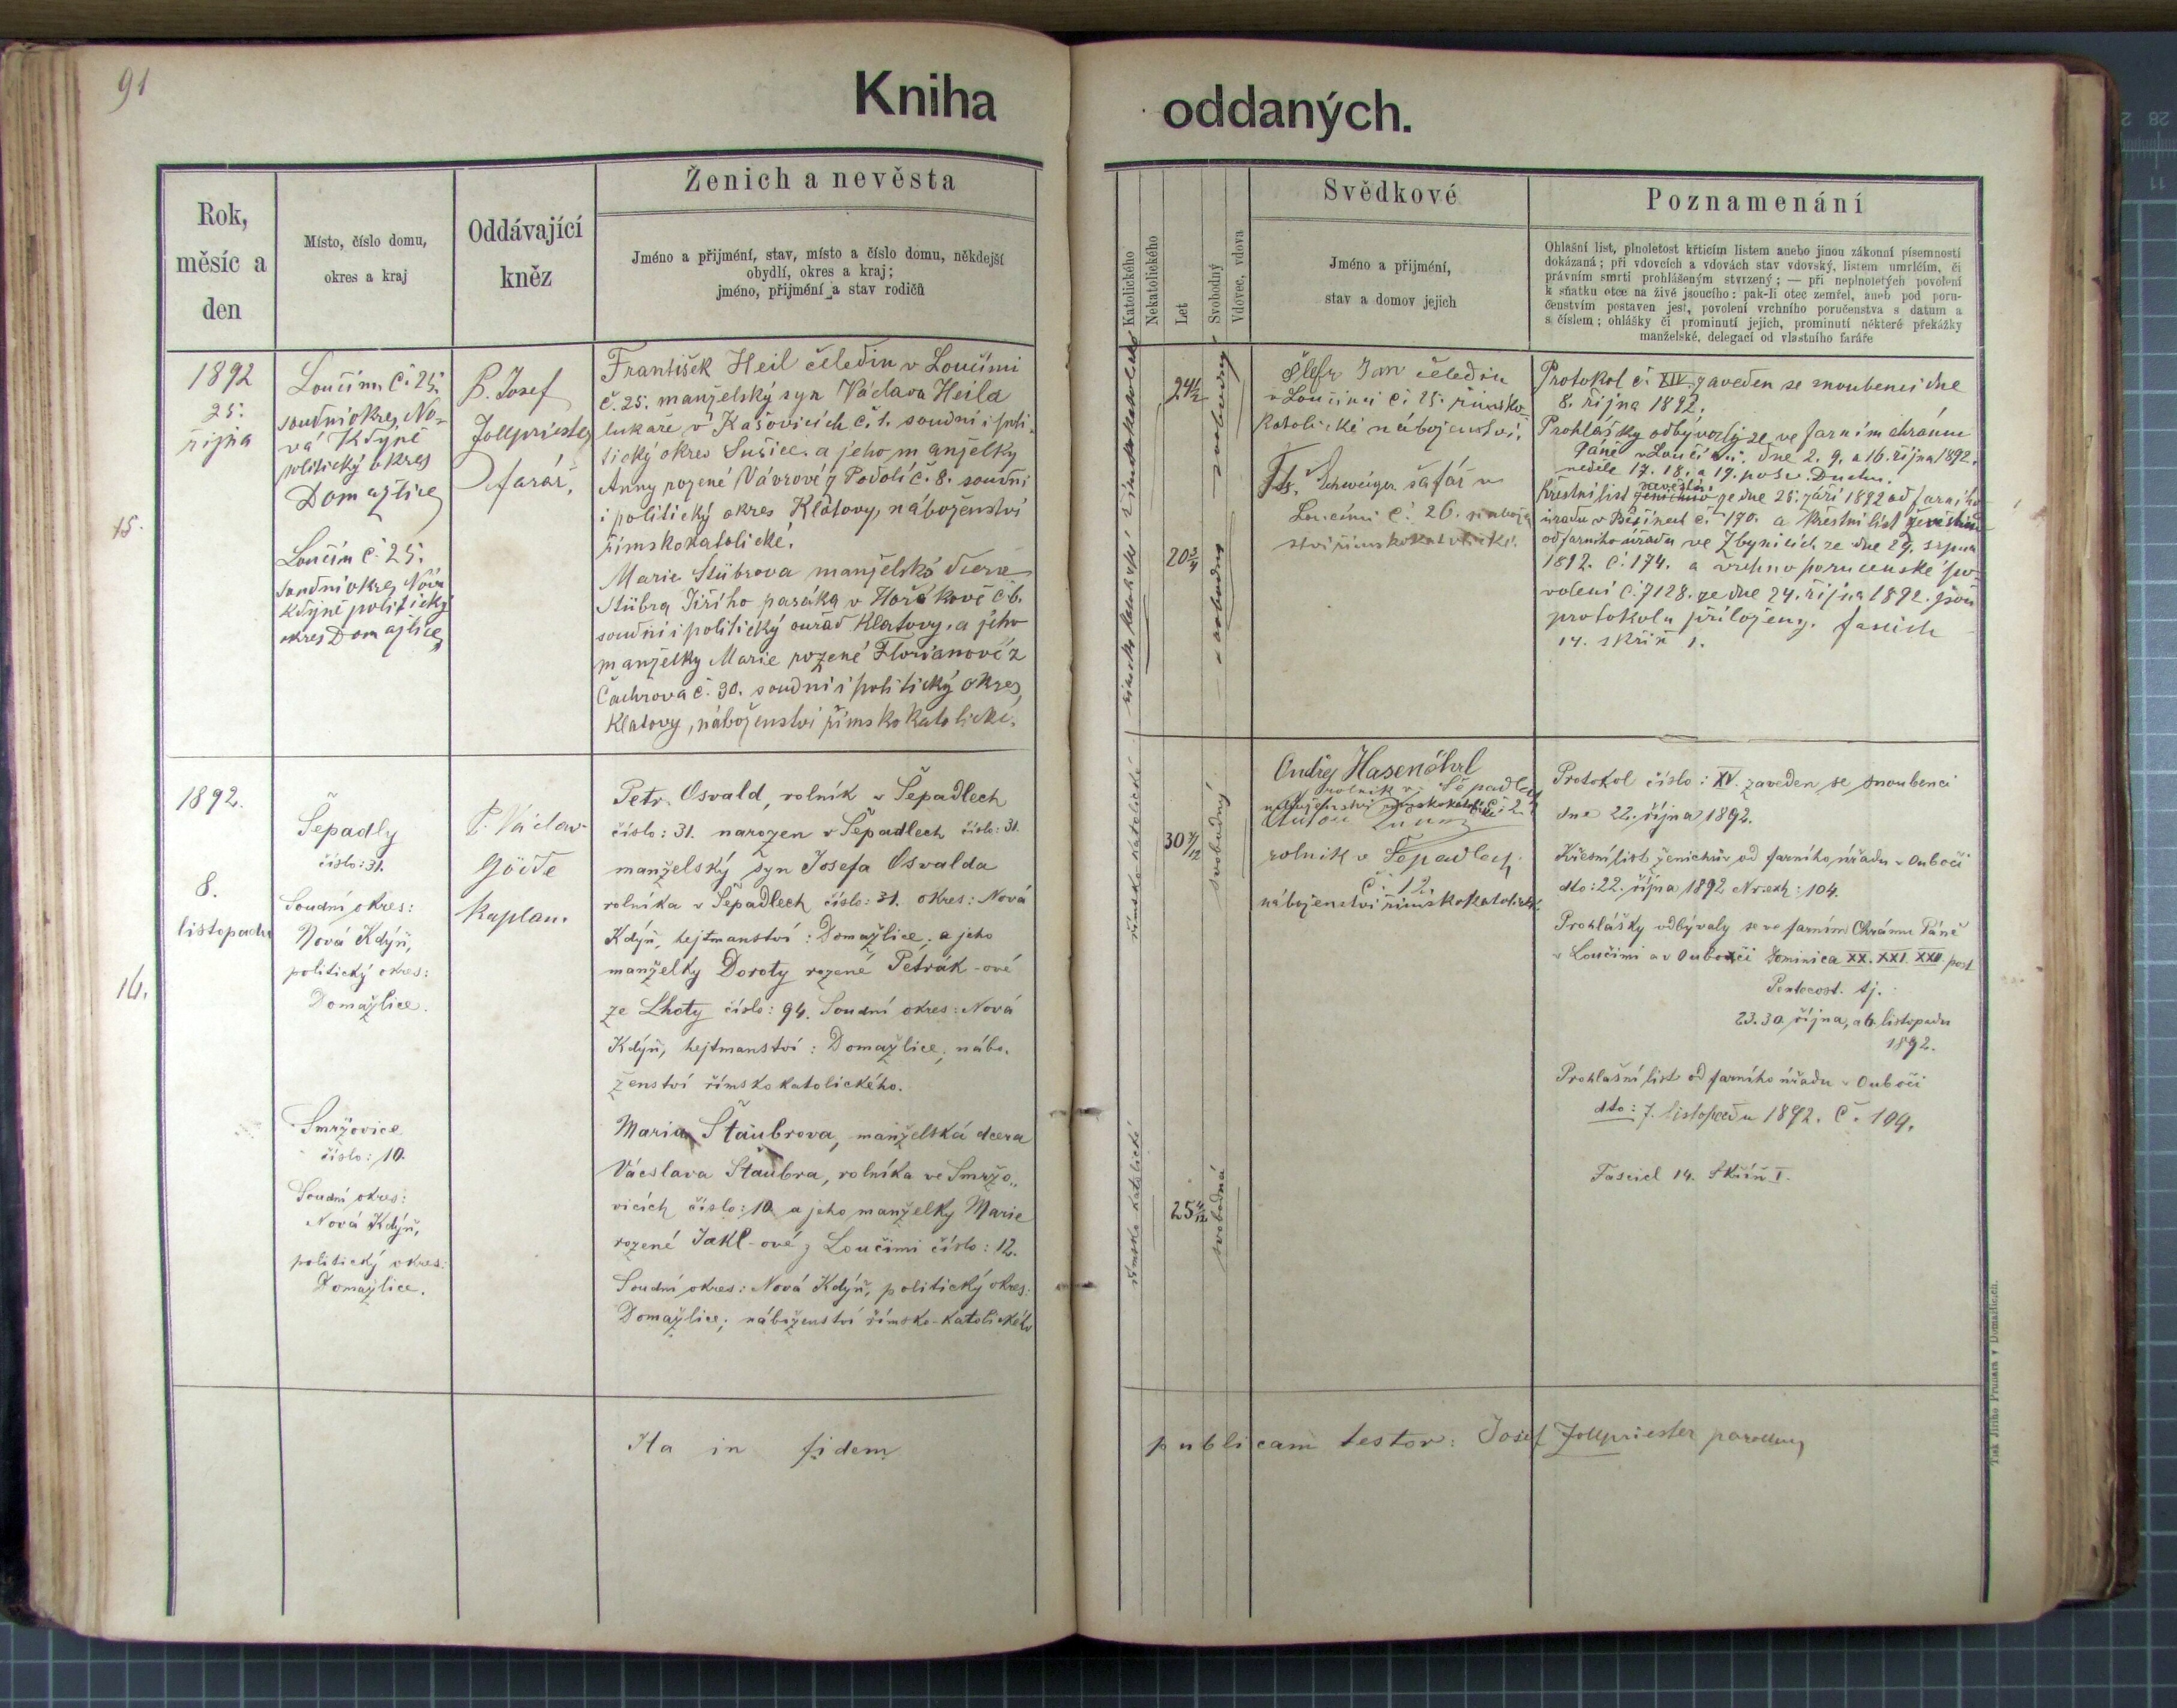 91
Kniha oddaných.
Rok,
měsíc a
den
Místo, číslo domu,
okres a kraj
Oddávající
kněz
Ženich a nevěsta
Jméno a přijmění, stav, místo a číslo domu, někdejší
obydlí, okres a kraj;
jméno, přijmění a stav rodičů
Katolického
Nekatolického
Let
Svobodný
Vdovec, vdova
Svědkové
Jméno a přijmění,
stav a domov jejich
Poznamenání
Ohlašní list, plnoletost křticím listem anebo jinou zákonní písemností
dokázaná; při vdovcích a vdovách stav vdovský, listem umrlčím, či
právním smrti prohlášeným stvrzený; — při neplnoletých povolení
k sňatku otce na živě jsoucího: pak-li otec zemřel, aneb pod poru-
čenstvím postaven jest, povolení vrchního poručenstva s datum a
s číslem; ohlášky či prominutí jejich, prominutí některé překážky
manželské, delegací od vlastního faráře
15.
1892
25.
října
Loučím č. 25.
soudní okres No-
vá Kdyně
politický okres
Domažlice
Loučím č. 25.
soudní okres Nová
Kdyně politický
okres Domažlice
P. Josef
Zollpriester
farář.
František Heil čeledín v Loučimi
č. 25. manželský syn Václava Heila
lukaře v Kašovicích č. 1. soudní i poli-
tický okres Sušice. a jeho manželky
Anny rozené Vávrové z Podolí č. 8. soudní
i politický okres Klatovy, náboženství
římskokatolické.
Marie Stübrova manželská dcera
Stübra Jiřího pasáka v Hořákově č. 6.
soudní i politický ouřad Klatovy. a jeho
manželky Marie rozené Florianové z
Čachrova č. 90. soudní i politický okres
Klatovy, náboženství římskokatolické.
římskokatolické
24½
svobodný
20¾
svobodna
Jan čeledín
v Loučimi č. 25. římsko
katolické náboženství.
Schweiger šafář v
Loučimi č. 26. nábožen
ství římskokatolické.
Protokol č. XIV. zaveden se snoubenci dne
8. října 1892.
Prohlášky odbývaly se ve farním chrámu
Páně v Loučimi. dne 2. 9. a 16. října 1892.
neděle 17. 18. a 19. po sv. Duchu.
nevěstin
Křestní list ženichův ze dne 25. září 1892 od farního
úřadu v Běšinech č. 170. a křestní list
od farního úřadu ve Zbynicích ze dne 29. srpna
1892. č. 174. a vrchno poručenské po-
volení č. 7128. ze dne 24. října 1892. jsou
protokolu přiloženy. fascich
14. skříň 1.
16.
1892.
8.
listopadu
Šepadly
číslo: 31.
Soudní okres:
Nová Kdýň,
politický okres:
Domažlice.
Smržovice
číslo: 10.
Soudní okres:
Nová Kdýň,
politický okres:
Domažlice.
P. Václav
kaplan.
Petr Osvald, rolník v Šepadlech
číslo: 31. narozen v Šepadlech číslo: 31.
manželský syn Josefa Osvalda
rolníka v Šepadlech číslo: 31. okres: Nová
Kdýň, hejtmanství: Domažlice; a jeho
manželky Doroty rozené Petrák-ové
ze Lhoty číslo: 94. Soudní okres: Nová
Kdýň, hejtmanství: Domažlice, nábo-
ženství římskokatolického.
Maria Štaubrova, manželská dcera
Vácslava Štaubra, rolníka ve Smržo-
vicích číslo: 10. a jeho manželky Marie
rozené Jakl-ové z Loučimi číslo: 12.
Soudní okres: Nová Kdýň, politický okres:
Domažlice; náboženství římsko-katolického
římsko katolické
30
svobodný
římsko katolické
25
svobodná
Ondřej Hasenöhrl
rolník v Šepadlech
náboženství římskokatolické č. 2.
Anton
rolník v Šepadlech
č. 12.
náboženství římskokatolické.
Protokol číslo: XV. zaveden se snoubenci
dne 22. října 1892.
Křesní list ženichův od farního úřadu v Oubočí
dto: 22. října 1892 Nr. exh: 104.
Prohlášky odbývaly se ve farním Chrámu Páně
v Loučimi a v Oubočí Dominica XX. XXI. XXII. post
Pentecost. tj.
23. 30. října, a 6. listopadu
1892.
Prohlašní list od farního úřadu v Oubočí
dto: 7. listopadu 1892. č. 109.
Fascicl 14. Skříň I.
Ita in fidem publicam testor: Josef Zollpriester
Tisk Jiřího Prunara v Domažlicích.